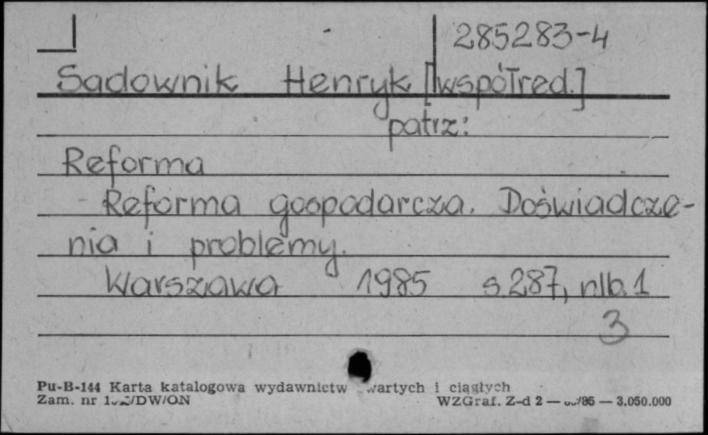 285283-4
Sadownik Henryk [współred.]
patrz:
Reforma
Reforma gospodarcza. Doświadcze-
nia i problemy.
Warszawa 1985 s. 287, nlb. 1
3
Pu-B-144 Karta katalogowa wydawnictw i ciągłych
Zam. nr WZGraf. Z-d 2 — 3.050.000